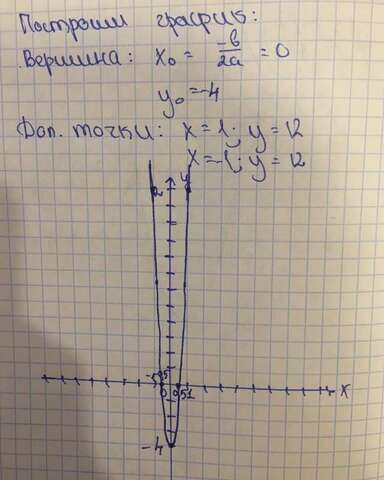 Построим график:
Вершина: x₀ = -b/2a = 0
y₀ = -4
Доп. точки: x = 1; y = 12
x = -1; y = 12
y
12
-1 0,5
0 0,5 1 x
-4